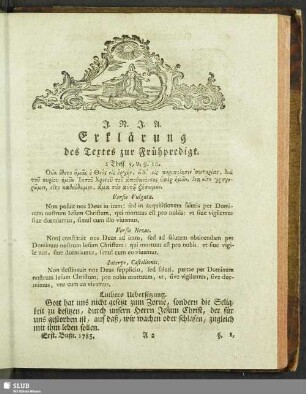 J. N. J. A.
Erklärung
des Textes zur Frühpredigt.
1 Thess. 5, v. 9. 10.
Οὐκ ἔθετο ἡμᾶς ὁ Θεὸς εἰς ὀργὴν, ἀλλ᾽ εἰς περιποίησιν σωτηρίας, διὰ
τοῦ κυρίου ἡμῶν Ἰησοῦ Χριστοῦ τοῦ ἀποθανόντος ὑπὲρ ἡμῶν, ἵνα εἴτε γρηγο-
ρῶμεν, εἴτε καθεύδωμεν, ἅμα σὺν αὐτῷ ζήσωμεν.
Versio Vulgata.
Non posuit nos Deus in iram: sed in acquisitionem salutis per Domi-
num nostrum Iesum Christum, qui mortuus est pro nobis: ut sive vigilemus
sive dormiamus, simul cum illo vivamus.
Versio
Non constituit nos Deus ad iram, sed ad salutem obtinendam per
Dominum nostrum Iesum Christum; qui mortuus est pro nobis, ut sive vigi-
lemus, sive dormiamus, simul cum eo vivamus.
Interpr. Castalionis.
Non destinavit nos Deus supplicio, sed saluti, partae per Dominum
nostrum Iesum Christum, pro nobis mortuum, ut, sive vigilemus, sive dor-
miamus, una cum eo vivamus.
Luthers Uebersetzung.
Gott hat uns nicht gesetzt zum Zorne, sondern die Selig-
keit zu besitzen, durch unsern Herrn Jesum Christ, der für
uns gestorben ist, auf daß, wir wachen oder schlafen, zugleich
mit ihm leben sollen.
Erst. Bußt. 1785. A 2 §. 1.
SLUB